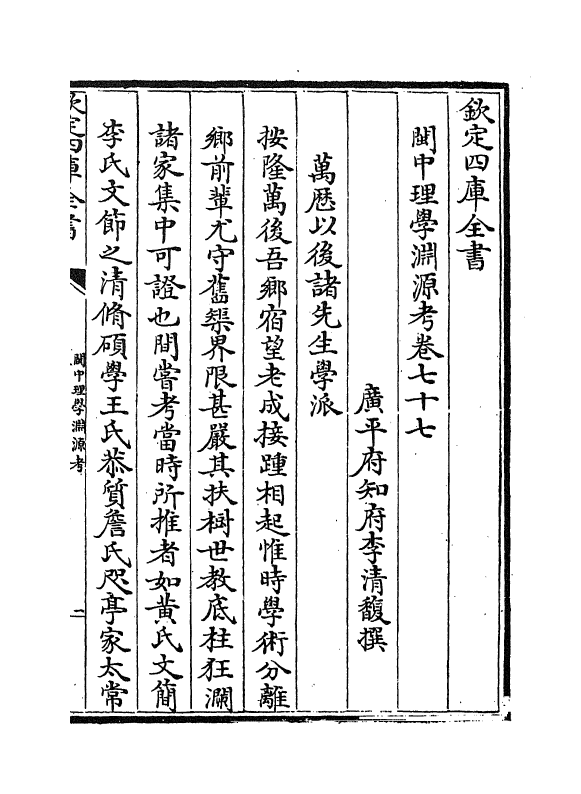 欽定四庫全書
閩中理學淵源考卷七十七
廣平府知府李清馥撰
萬厯以後諸先生學派
按隆萬後吾鄉宿望老成接踵相起惟時學術分離
鄉前輩尤守舊榘界限甚嚴其扶樹世教底柱狂瀾
諸家集中可證也間嘗考當時所推者如黄氏文簡
李氏文節之清脩碩學王氏恭質詹氏咫亭家太常
欽定四庫全書
閩中理學淵源考